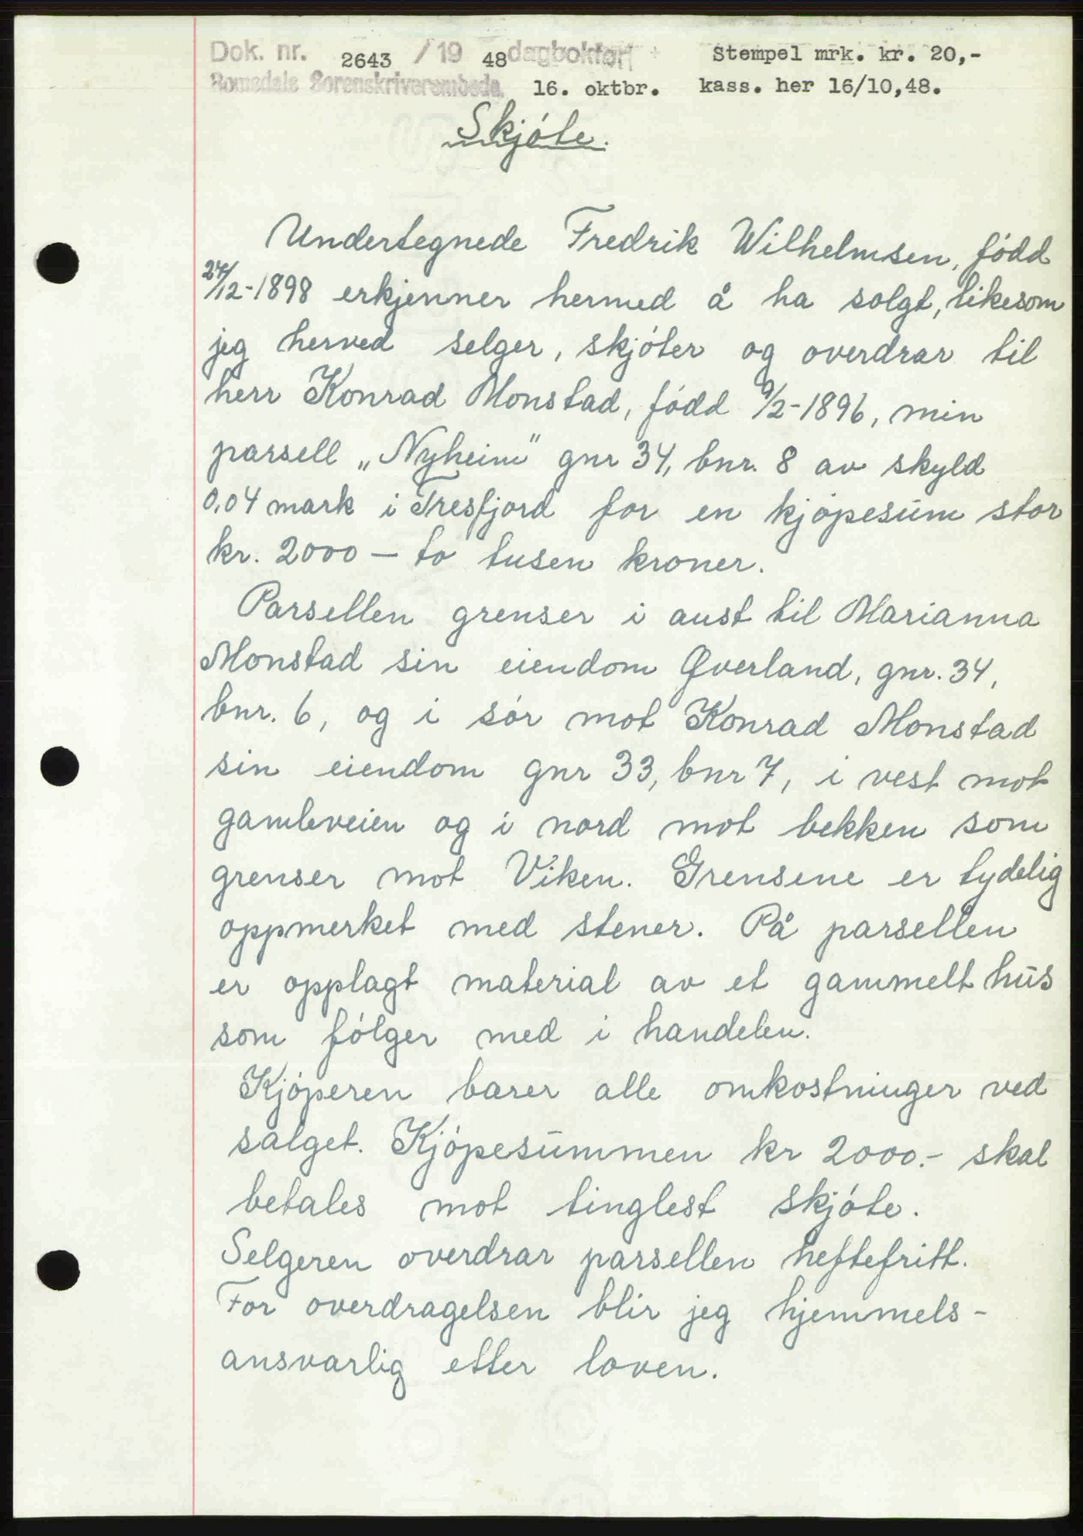 Dok. nr. 2643 / 19 48 dagbokført Stempel mrk. kr. 20,-
Romsdals Sorenskriverembede. 16. oktbr. kass. her 16/10,48.
Skjøte.
Undertegnede Fredrik Wilhelmsen, född
24/12-1898 erkjenner hermed å ha solgt, likesom
jeg herved selger, skjóter og overdrar til
herr Konrad Monstad, född 9/2-1896, min
parsell „Nyheim" gnr 34, bnr. 8 av skyld
0,04 mark i Tresfjord for en kjópesum stor
kr. 2000 — to tusen kroner.
Parsellen grenser i aust til Marianna
Monstad sin eiendom Øverland, gnr. 34,
bnr. 6, og i sór mot Konrad Monstad
sin eiendom gnr 33, bnr 7, i vest mot
gamleveien og i nord mot bekken som
grenser mot Viken. Grensene er tydelig
oppmerket med stener. På parsellen
er opplagt material av et gammelt hus
som fólger med i handelen.
Kjóperen barer alle omkostninger ved
salget. Kjópesummen kr 2000.- skal
betales mot tinglest skjóte.
Selgeren overdrar parsellen heftefritt.
For overdragelsen blir jeg hjemmels-
ansvarlig etter loven.